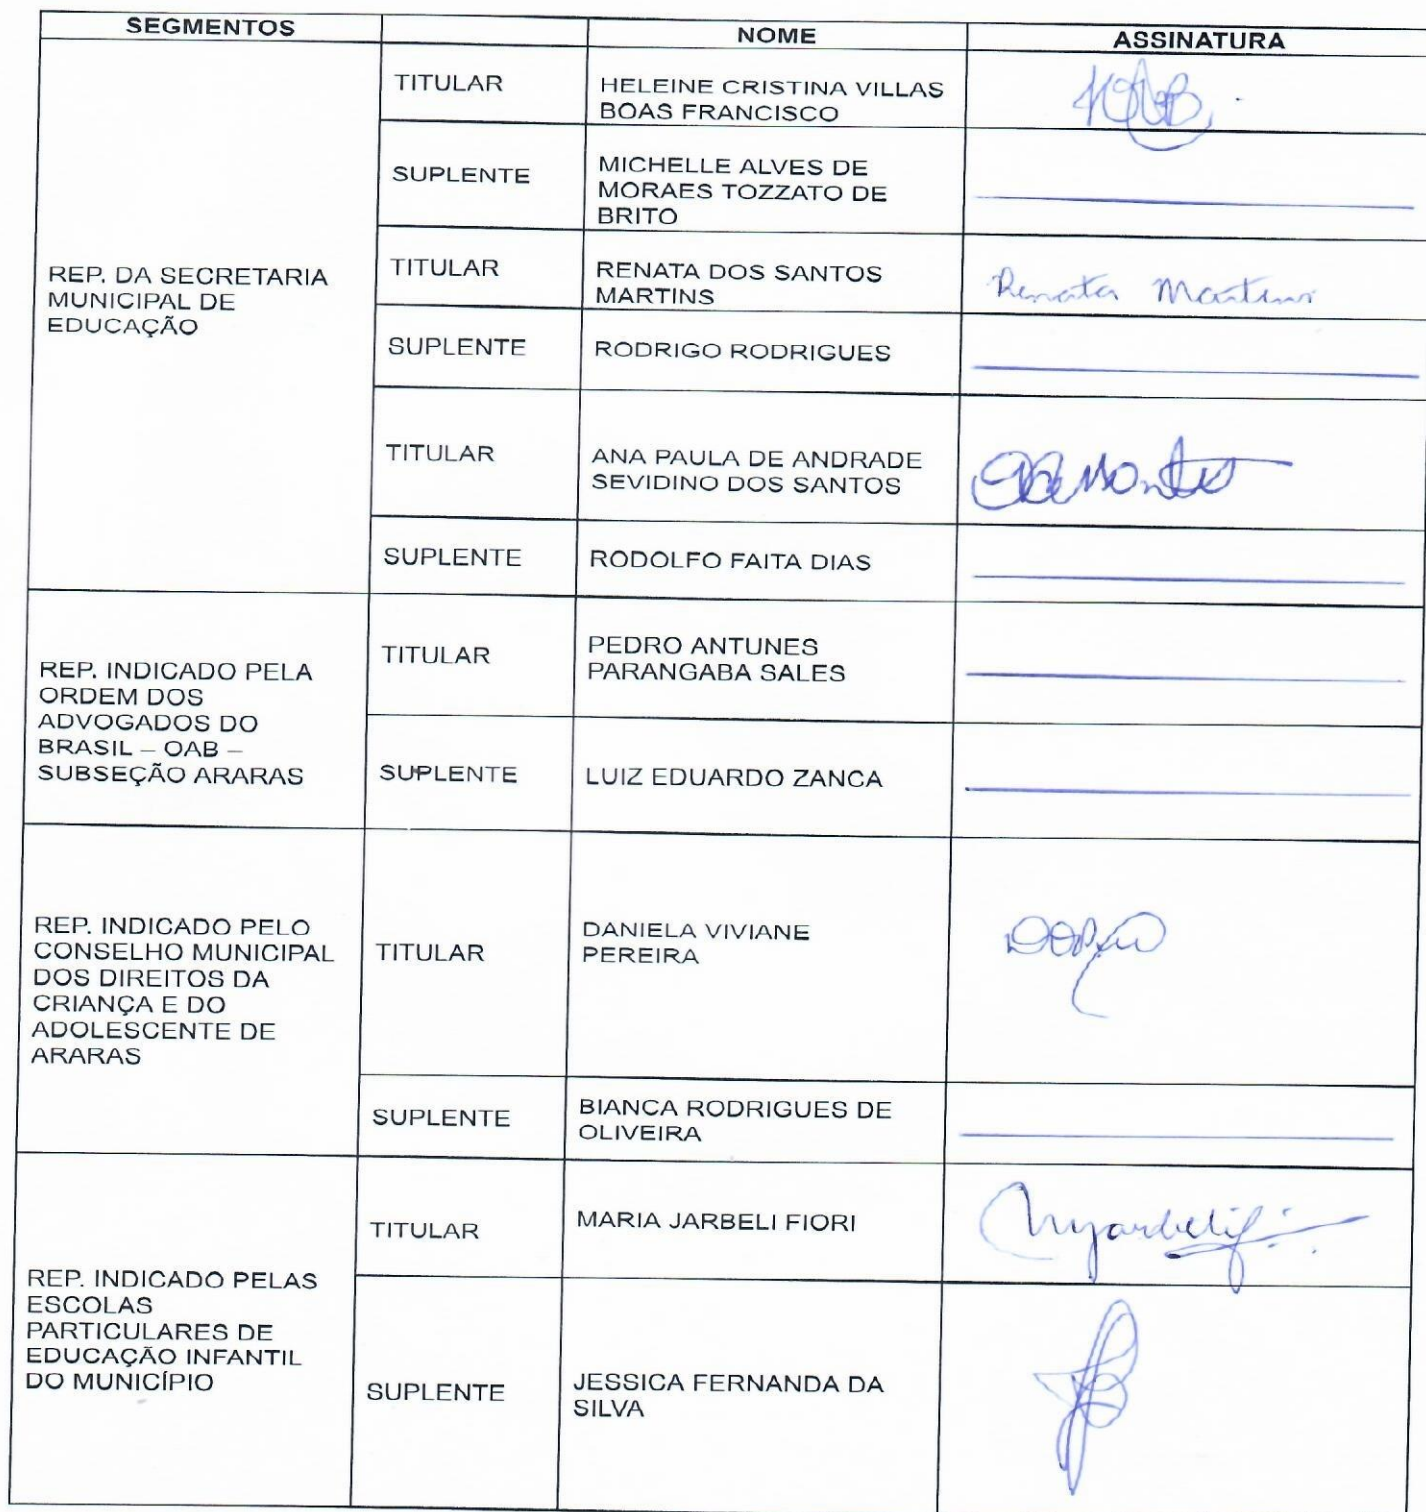 SEGMENTOS
NOME
ASSINATURA
REP. DA SECRETARIA
MUNICIPAL DE
EDUCAÇÃO
TITULAR
HELEINE CRISTINA VILLAS
BOAS FRANCISCO
SUPLENTE
MICHELLE ALVES DE
MORAES TOZZATO DE
BRITO
TITULAR
RENATA DOS SANTOS
MARTINS
Renata Martins
SUPLENTE
RODRIGO RODRIGUES
TITULAR
ANA PAULA DE ANDRADE
SEVIDINO DOS SANTOS
SUPLENTE
RODOLFO FAITA DIAS
REP. INDICADO PELA
ORDEM DOS
ADVOGADOS DO
BRASIL – OAB –
SUBSEÇÃO ARARAS
TITULAR
PEDRO ANTUNES
PARANGABA SALES
SUPLENTE
LUIZ EDUARDO ZANCA
REP. INDICADO PELO
CONSELHO MUNICIPAL
DOS DIREITOS DA
CRIANÇA E DO
ADOLESCENTE DE
ARARAS
TITULAR
DANIELA VIVIANE
PEREIRA
SUPLENTE
BIANCA RODRIGUES DE
OLIVEIRA
REP. INDICADO PELAS
ESCOLAS
PARTICULARES DE
EDUCAÇÃO INFANTIL
DO MUNICÍPIO
TITULAR
MARIA JARBELI FIORI
SUPLENTE
JESSICA FERNANDA DA
SILVA